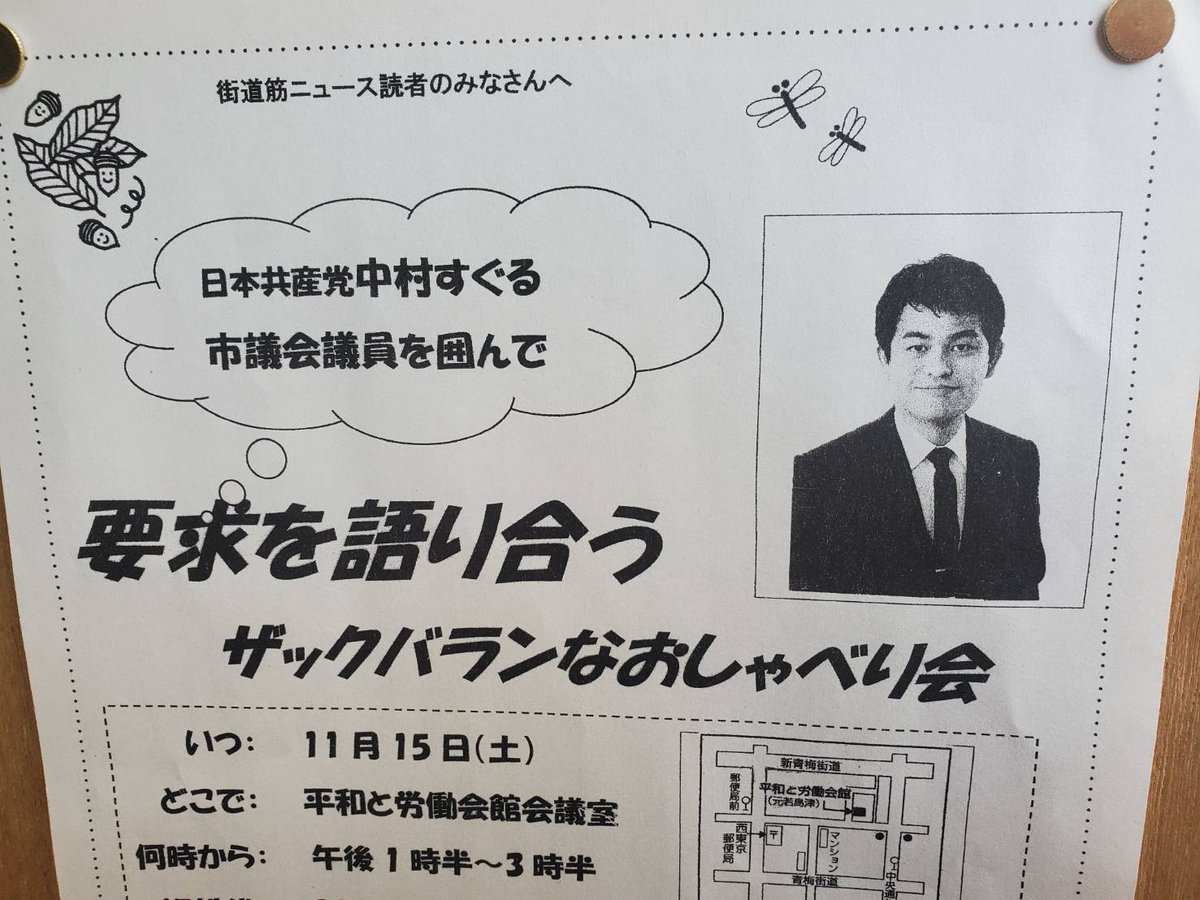 街道筋ニュース読者のみなさんへ
日本共産党中村すぐる
市議会議員を囲んで
要求を語り合う
ザックバランなおしゃべり会
いつ： 11月15日(土)
どこで： 平和と労働会館会議室
何時から： 午後1時半～3時半
新青梅街道
郵便局前
平和と労働会館
(元若島津)
西東京郵便局
〒
マンション
青梅街道
中央通